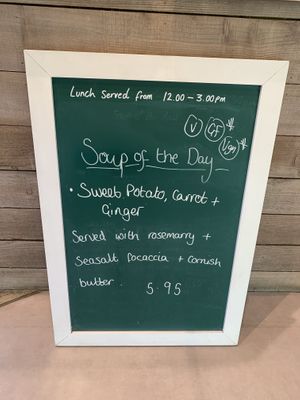 Lunch Served from 12.00 - 3.00pm
V GF* Vgn*
Soup of the Day
• Sweet Potato, Carrot +
Ginger
Served with rosemarry +
Seasalt focaccia + Cornish
butter. 5.95